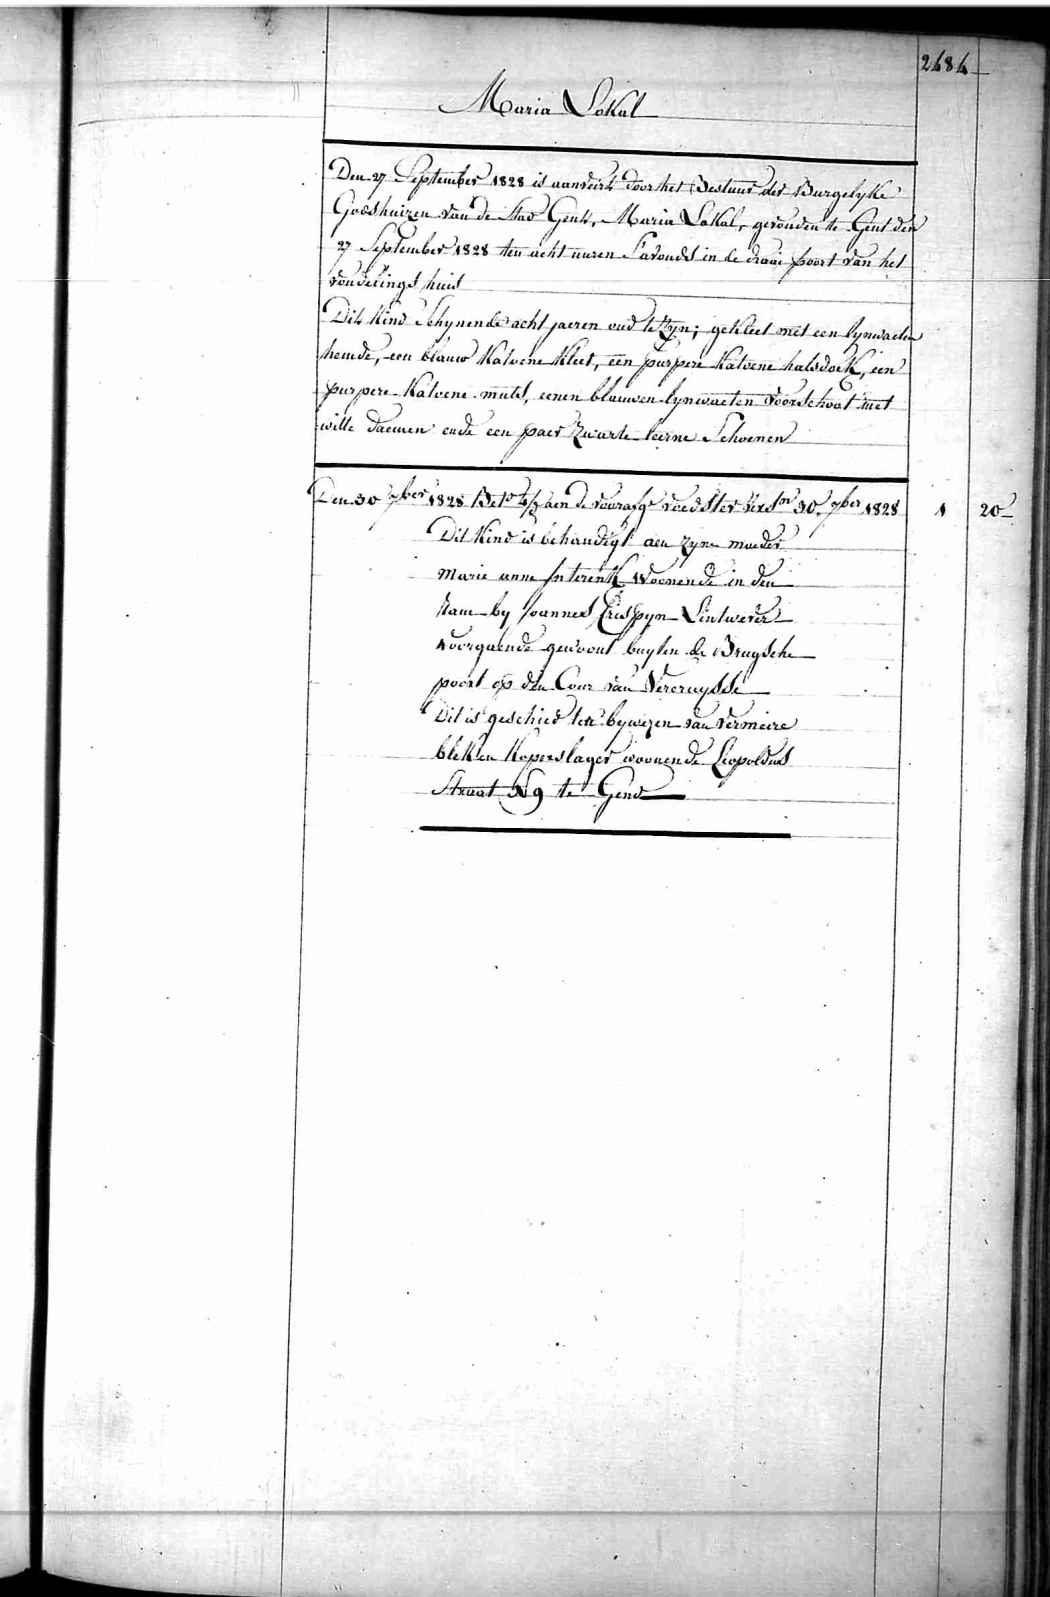 2484
Maria Lokal
Den 27 September 1828 is aanveird door het Bestuur der Burgelyke
Godshuizen van de Stad Gend, Maria Lokal, gevonden te Gent den
27 September 1828 ten acht uuren Savonds in de draai poort van het
vondelings huis
Dit Kind Schynende acht jaeren oud te Zyn; gekleet met een lynwaeten
hemde, een blauw Katoene Kleet, een purpere Katoene halsdoek, een
purpere Katoene muts, eenen blauwen lynwaeten voorschoot met
witte daemen ende een paer Zwarte leerne Schoenen
Den 30 7ber 1828 Bet° aen de voorafg° 30 7ber 1828 1 20
Dit Kind is behandigt aen zyne moeder
Marie anne woonende in den
ham by Joannes Crispyn Lintwever
voorgaende gewoont buyten de Brugsche
poort op den Cour van Vercruysse
Dit is geschied ten bywezen van Vermeire
blek en Koperslager woonende Leopoldus
Straat N 9 te Gend